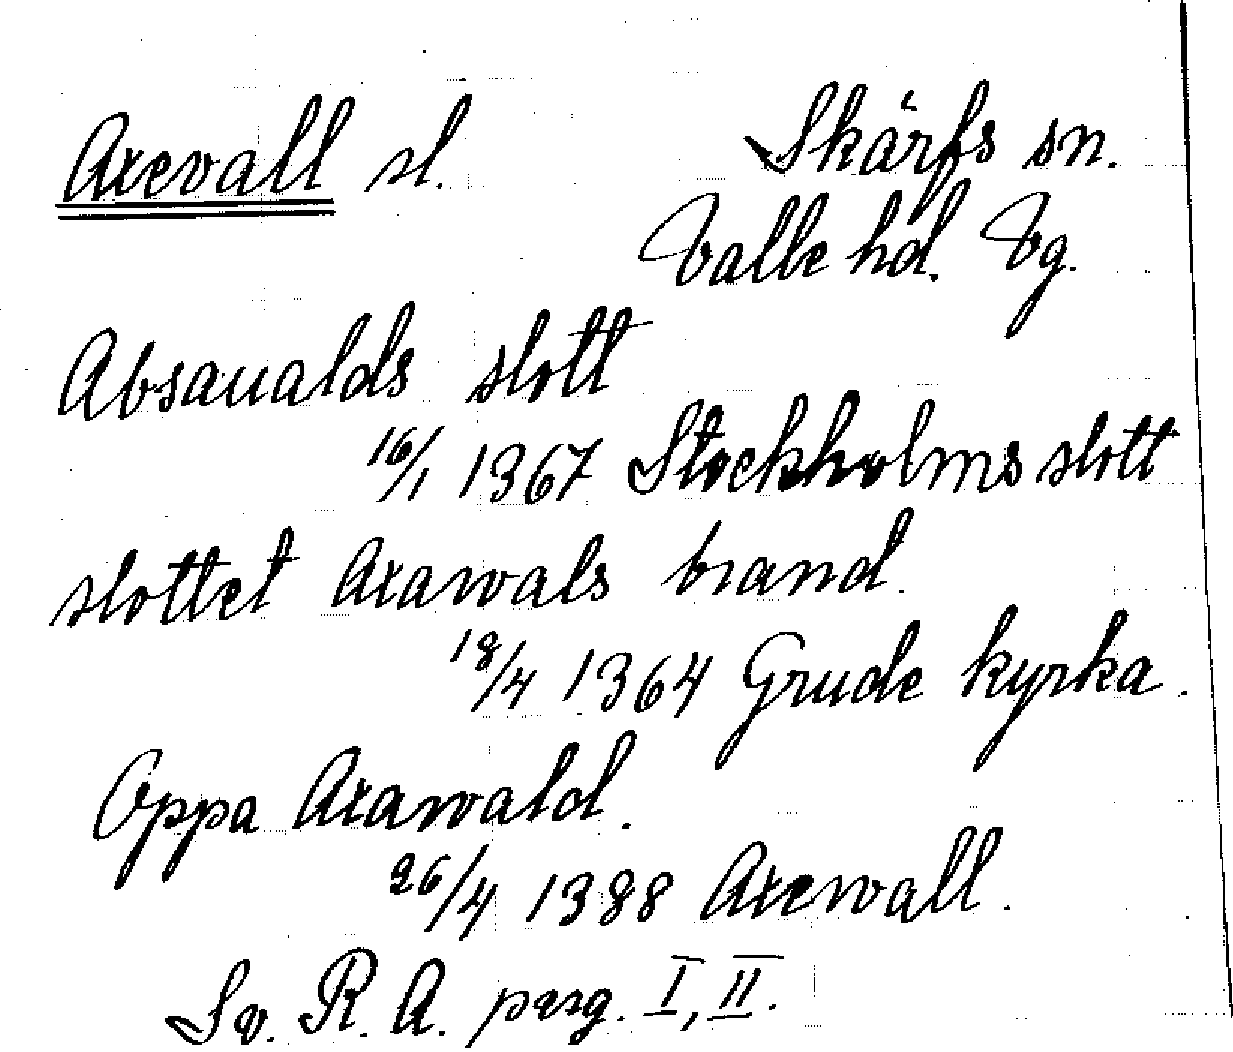 Axevall sl. Skärfs sn.
Valle hd. Vg.
Absaualds slott
16/1 1367 Stockholms slott
slottet Axawals brand.
18/4 1364 Grude kyrka.
Oppa Axawald.
26/4 1388 Axewall.
Sv. R. A. perg. I, II.